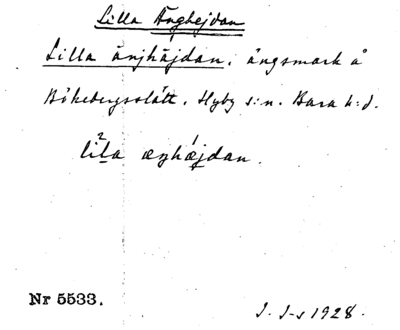 Lilla Änghejdan
Lilla änjhäjdan, ängsmark å
Bökebergsslätt, Hyby s:n. Bara h:d.
lila æŋhæjdan.
Nr 5533.
J. J-s 1928.